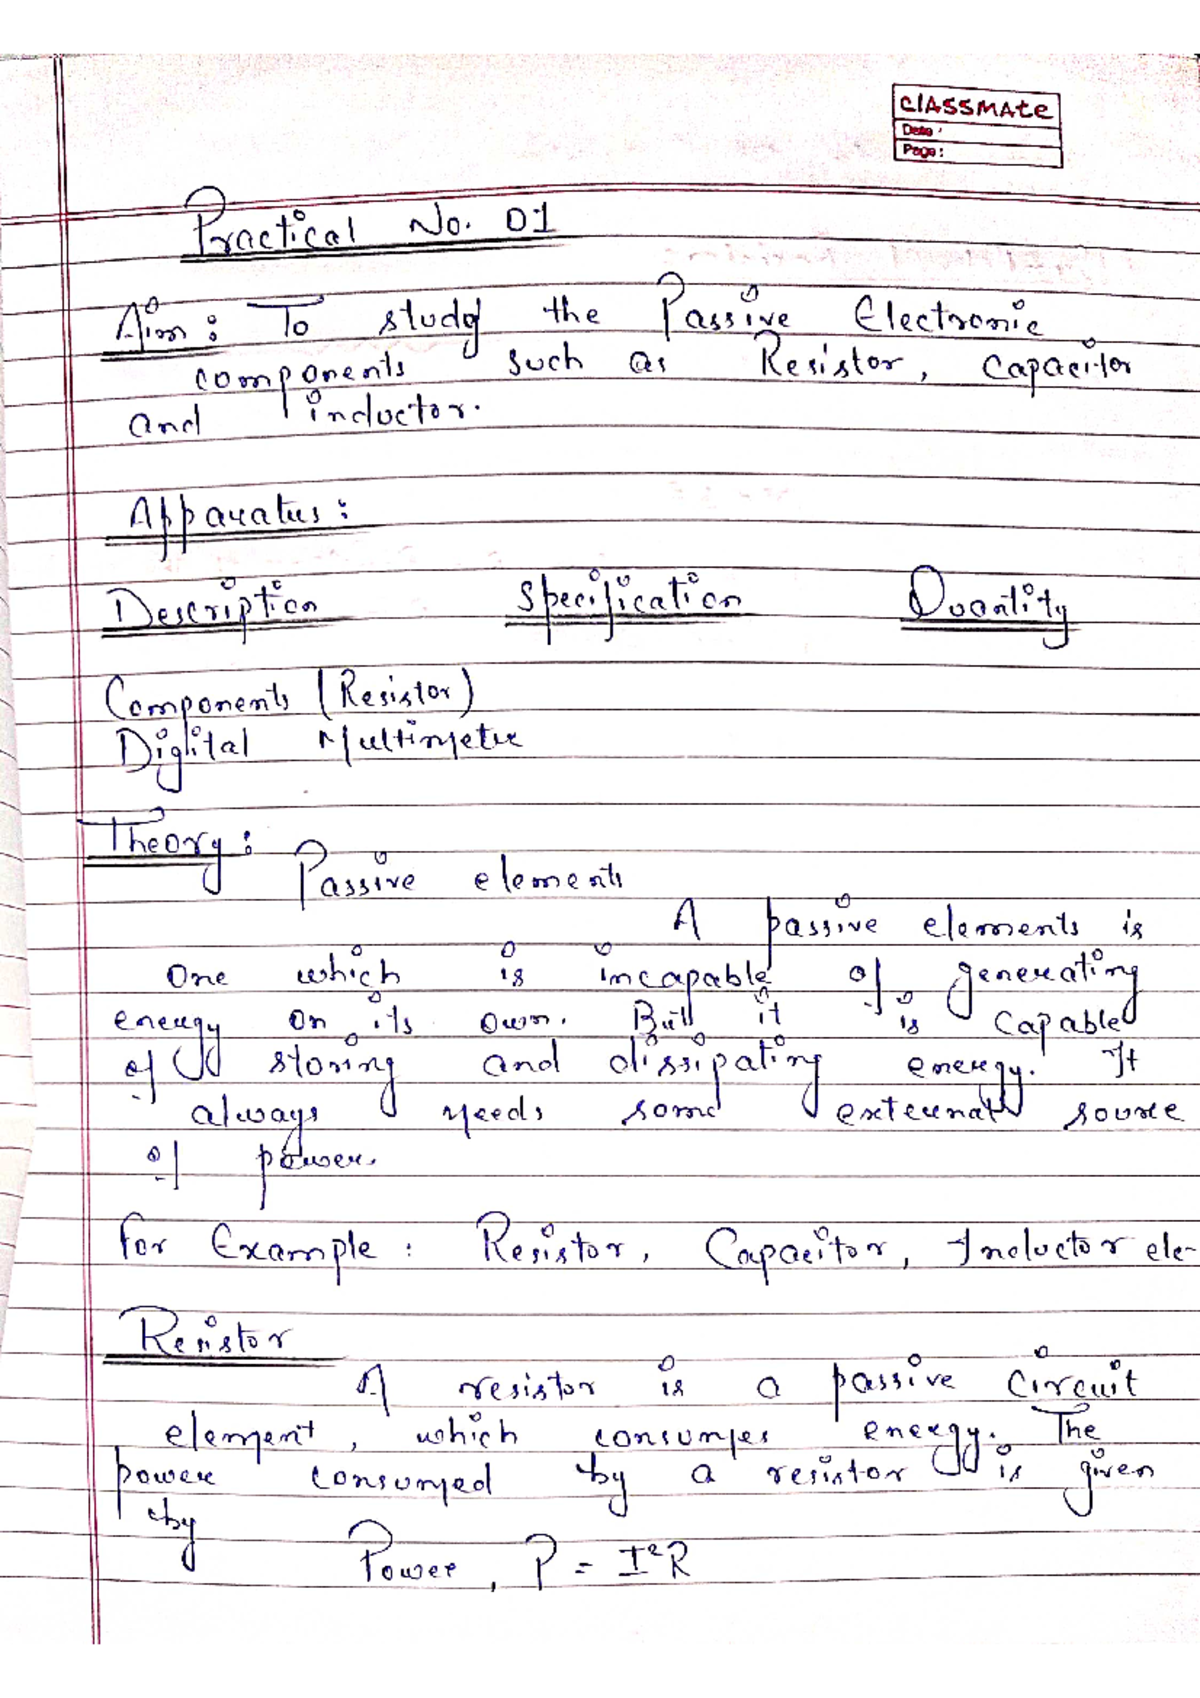 CLASSMATE
Date :
Page :
Practical No. 01
Aim : To study the Passive Electronic
components such as Resistor, Capacitor
and inductor.
Apparatus :
Description Specification Quantity
Components (Resistor)
Digital Multimeter
Theory :
Passive elements
A passive elements is
one which is incapable of generating
energy on its own. But it is capable
of storing and dissipating energy. It
always needs some external source
of power.
For Example : Resistor, Capacitor, Inductor ele-
Resistor
A resistor is a passive circuit
element, which consumes energy. The
power consumed by a resistor is given
by
Power, P = I²R